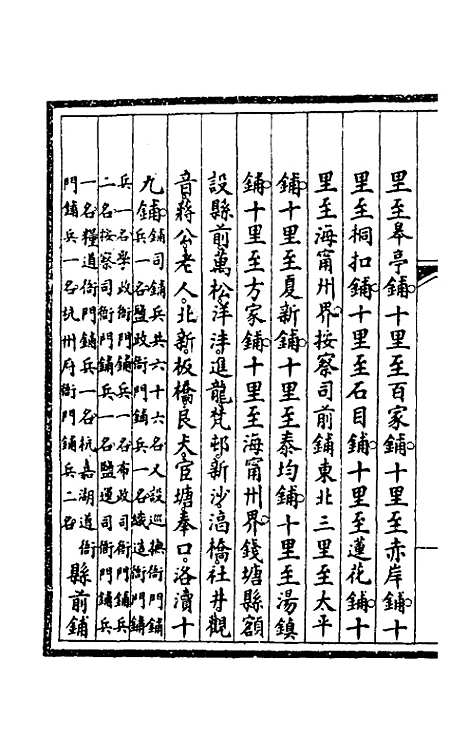 里至皋亭鋪十里至百家鋪十里至赤岸鋪十
里至桐扣鋪十里至石目鋪十里至蓮花鋪十
里至海甯州界按察司前鋪東北三里至太平
鋪十里至夏新鋪十里至泰均鋪十里至湯鎮
鋪十里至方家鋪十里至海甯州界錢塘縣額
設縣前萬松洋泮進龍梵邨新沙㵎橋社井觀
音蔣公老人北新板橋良犬官塘奉口洛瀆十
九鋪鋪司鋪兵共六十六名又設巡撫衙門鋪
兵一名鹽政衙門鋪兵一名織造衙門鋪
兵一名學政衙門鋪兵一名布政司衙門鋪兵
二名按察司衙門鋪兵一名鹽運司衙門鋪兵
一名糧道衙門鋪兵一名杭嘉湖道衙
門鋪兵一名杭州府衙門鋪兵二名
縣前鋪